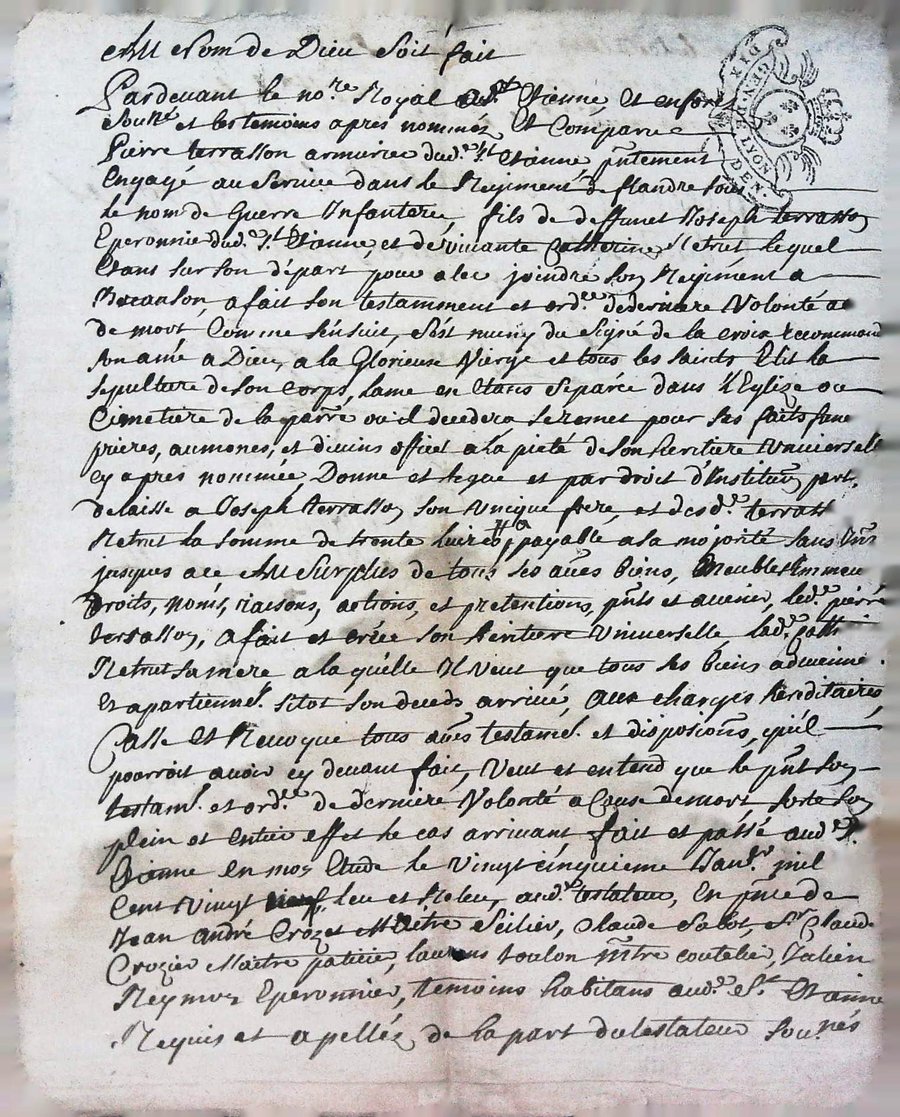 Au Nom de Dieu Soit fait
Pardevant le no.re Royal a St Etienne, Et enforest
Sou.né et les temoins apres nommés Et Comparu
Pierre terrasson armurier dud. St Etienne pntement
Engagé au Service dans le Regiment de flandre sous
le nom de Guerre Infanterie, fils de deffunct Joseph terrasson
Eperonnie dud. St Etienne, et de vivante Catherine Netrut lequel
Etans sur son départ pour aler joindre son Regiment a
a fait son testamment et ord.ce de derniere Volonté a
de mort Comme sensuit, s'est muny du signe de la croix recommandé
Son ame a Dieu, a la Glorieuse Vierge et tous les saints Elit la
sepulture de son corps, lame en Etans separée dans l'Eglise ou
Cimetiere de la parre ou il decedera se remet pour ses faits fune
prieres, aumones, et divins offices a la pieté de son heritiere Universelle
cy apres nommée, Donne et legue et par droit d'Institution part.
delaisse a Joseph terrasson son Unique frere, et des d. terrasson
Netrut la somme de trente livres payable a sa majorité sans
jusques a ce Au Surplus de tous ses autres biens, Meubles Immeu
Droits, noms, raisons, actions, et pretentions, pnts et avenir, led. pierre
terrasson, a fait et créée son heritiere Universelle lad. Cath
Netrut sa mere a la quelle Il Veut que tous ses biens advienne
Et apartiennet. sitot son deceds arrivé, aux charges hereditaires,
Casse Et Revoque tous autres testament. et disposicions, quil
pourroit avoir cy devant fait, Veut et entend que le pnt son
testam.t et ord.ce de derniere Volonté a Cause de mort sorte son
plein et entier effet le cas arrivant fait et passé aud. St
Etienne en mon Etude le vingt cinquieme Janv.r mil
Cent vingt neuf leu et Releu, aud. testateur, En pnce de
Jean andré Crozet Maitre Sellier, Claude Sabot, Sr Claude
Crozier Maitre patissier, laurens toulon mtre coutelier, Julien
Reymon Eperonnier, temoins habitans aud. St Etienne
Requis et apellés de la part du testateur sou.nés
DIX DEN.
GEN. DE LYON